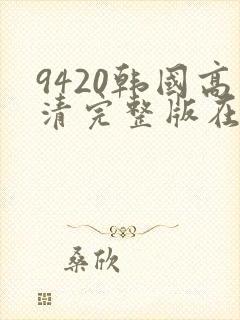 9420韩国高
清完整版在
桑欣